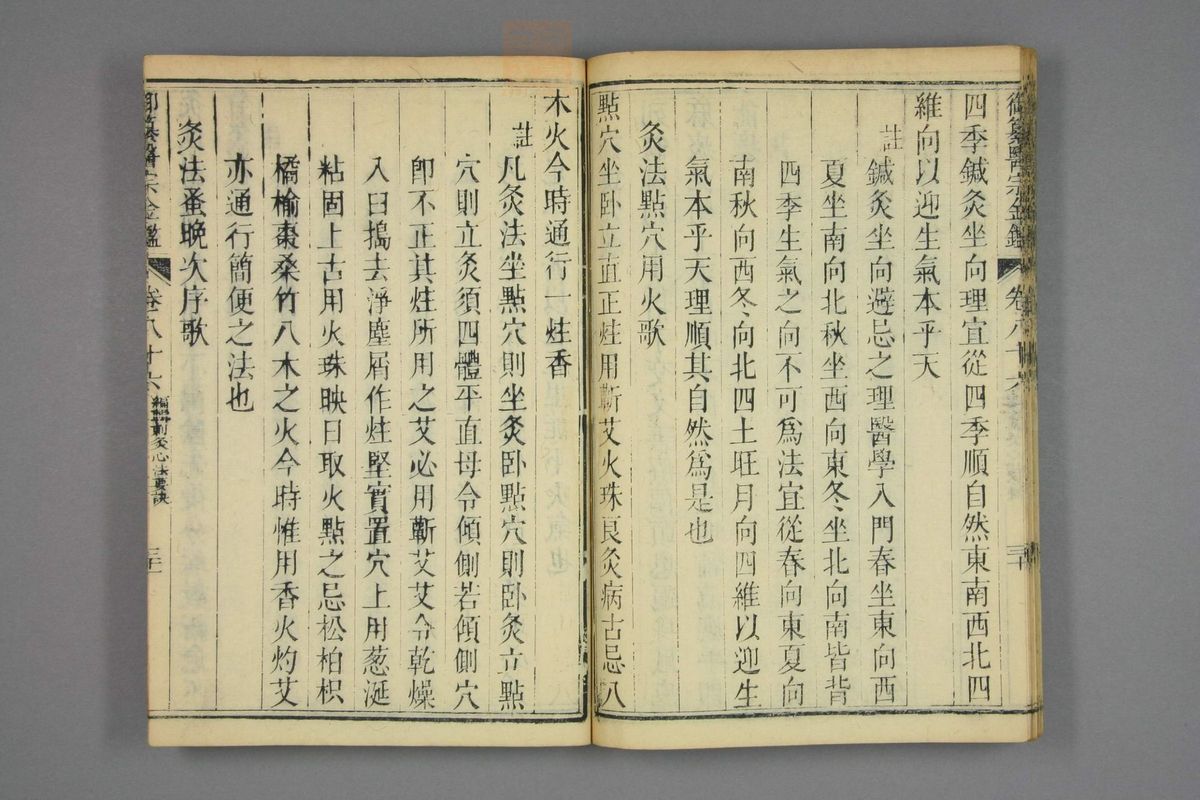 御纂醫宗金鑑 卷八十六 三十
四季鍼灸坐向理宜從四季順自然東南西北四
維向以迎生氣本乎天
註 鍼灸坐向避忌之理醫學入門春坐東向西
夏坐南向北秋坐西向東冬坐北向南皆背
四季生氣之向不可爲法宜從春向東夏向
南秋向西冬向北四土旺月向四維以迎生
氣本乎天理順其自然爲是也
灸法點穴用火歌
點穴坐卧立直正炷用蘄艾火珠良灸病古忌八
木火今時通行一炷香
註 凡灸法坐點穴則坐灸卧點穴則卧灸立點
穴則立灸須四體平直母令傾側若傾側穴
卽不正其炷所用之艾必用蘄艾艾令乾燥
入臼搗去淨塵屑作炷堅實置穴上用葱涎
粘固上古用火珠映日取火點之忌松柏枳
橘榆棗桑竹八木之火今時惟用香火灼艾
亦通行簡便之法也
灸法蚤晚次序歌
御纂醫宗金鑑 卷八十六 編輯刺灸心法要訣